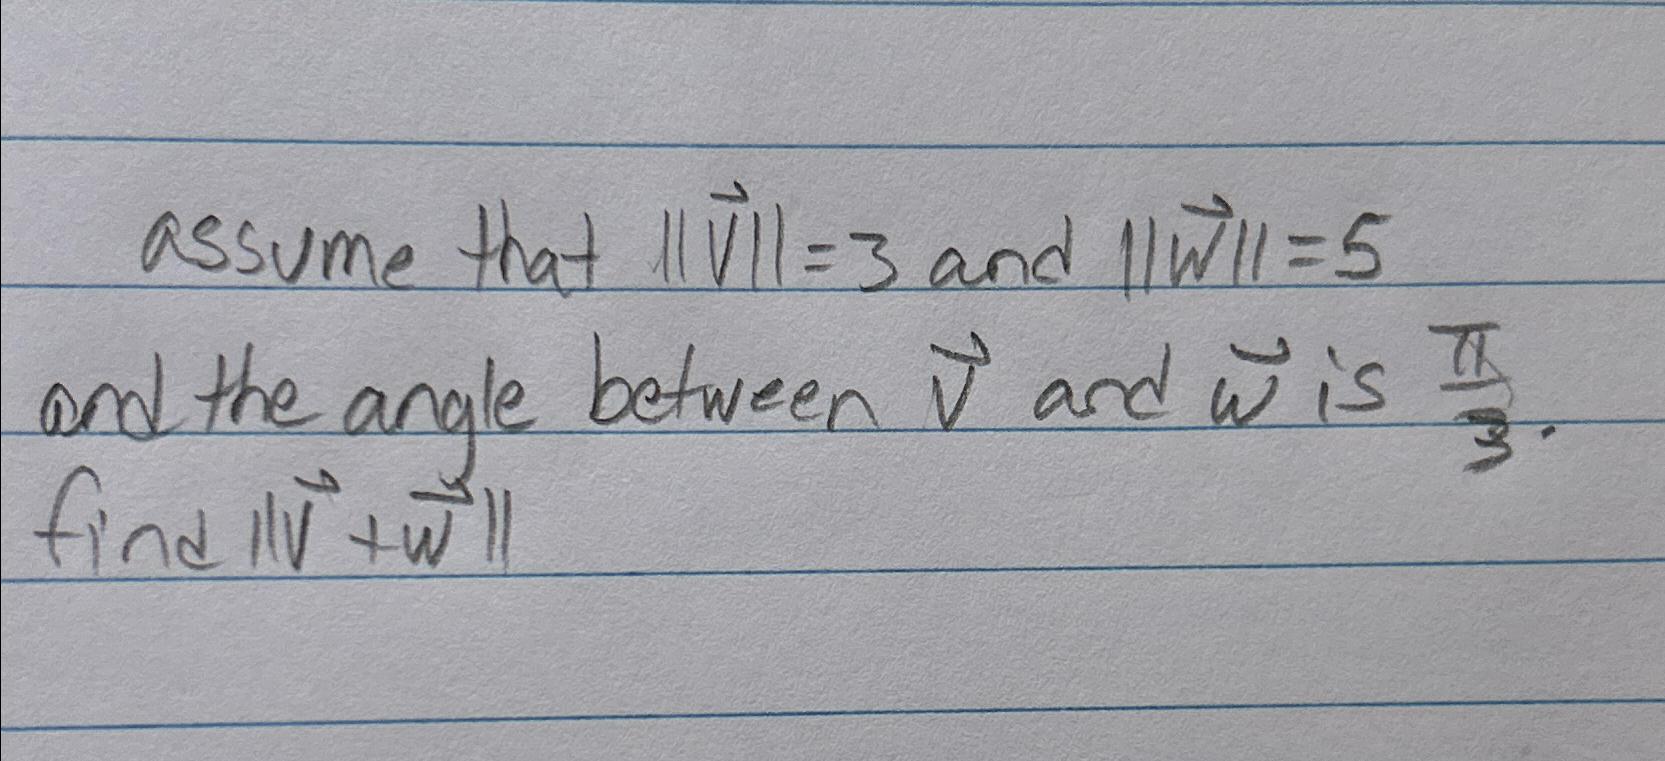 assume that ||v⃗|| = 3 and ||w⃗|| = 5
and the angle between v⃗ and w⃗ is π/3.
find ||v⃗ + w⃗||